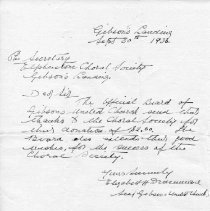 Gibson's Landing
Sept 30th 1936
The Secretary
Elphinstone Choral Society
Gibson's Landing
Dear Sir
The Official Board of
Gibsons United Church send their
thanks to the Choral Society for
their donation of $2.00. The
Board also extends their good
wishes, for the success of the
Choral Society.
Yours Sincerely
Elizabeth
Secy Gibsons United Church